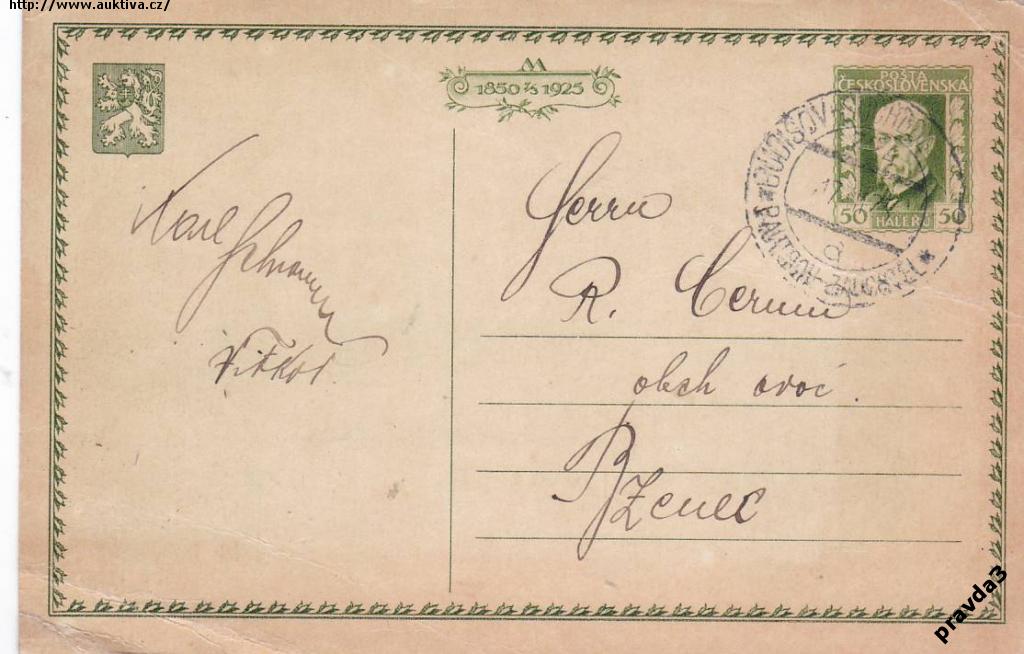 http://www.auktiva.cz/
1850 7/3 1925
POŠTA
ČESKOSLOVENSKÁ
50 HALÉŘŮ 50
BUDIŠOV
Karl
Vítkov
Herrn
R. Cerum
obch ovoc.
Bzenec
pravda3